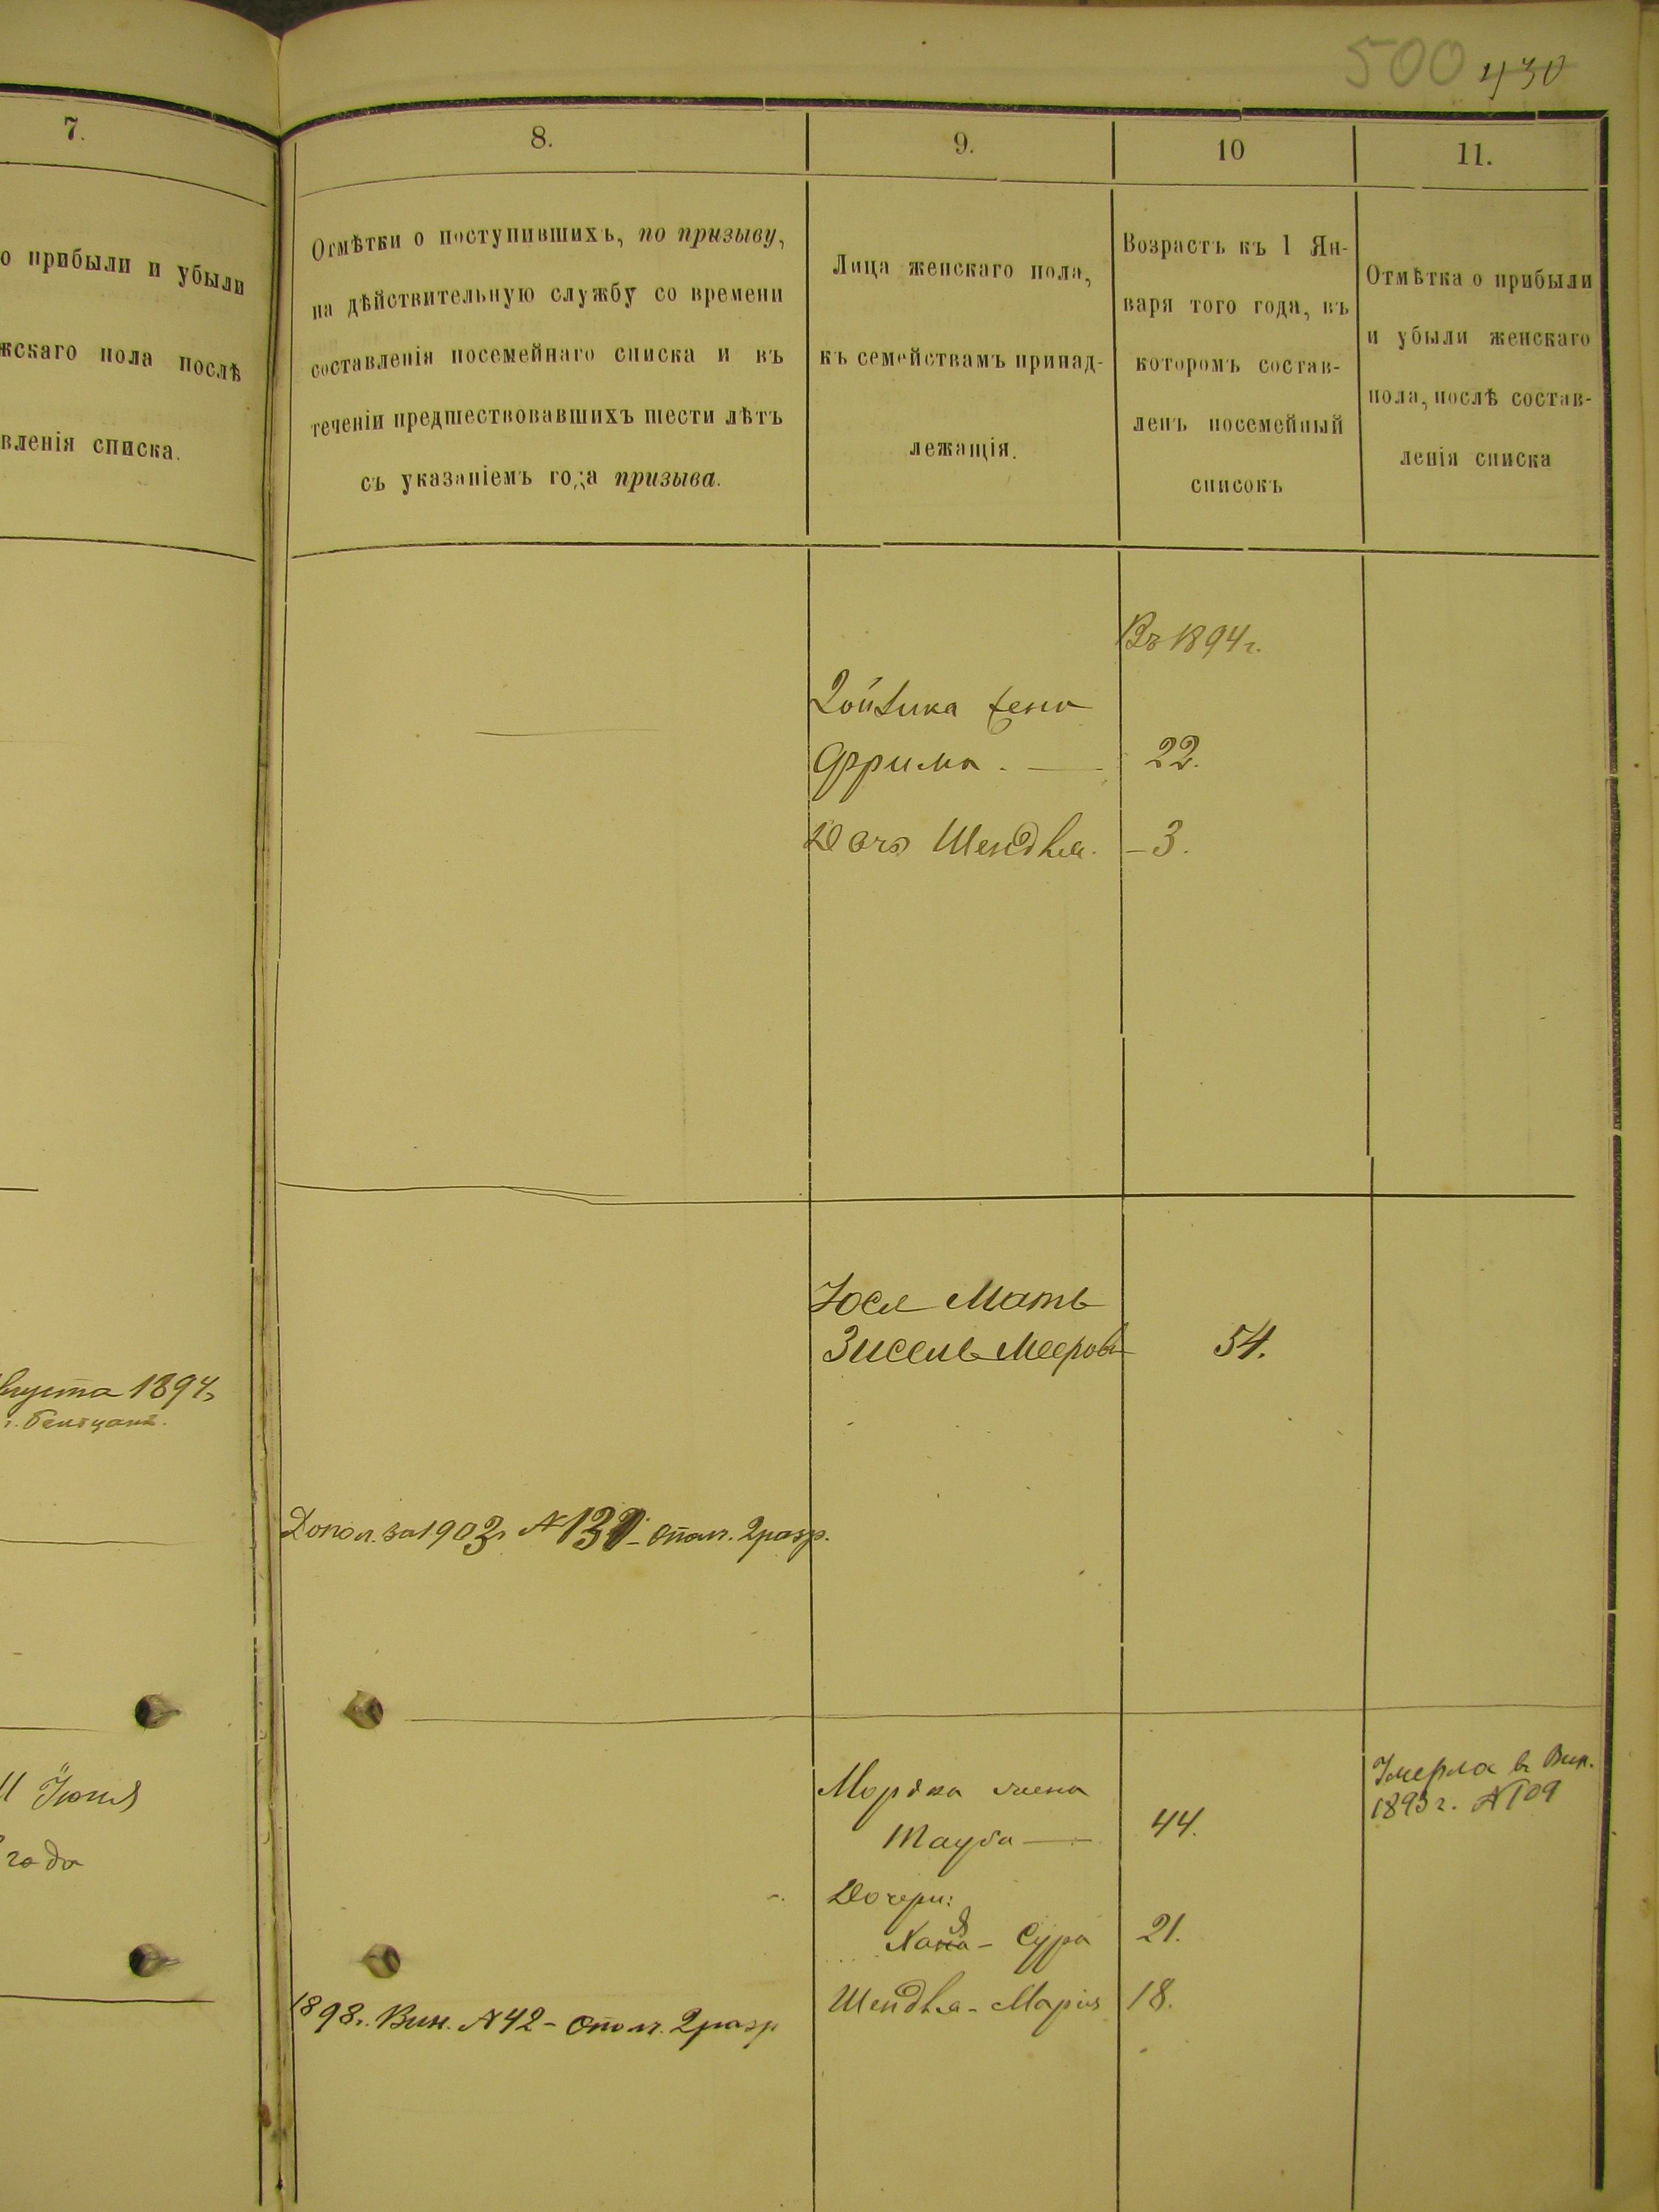 500 430
7.
8.
9.
10
11.
о прибыли и убыли
жскаго пола послѣ
вленія списка.
Отмѣтки о поступившихъ, по призыву,
на дѣйствительную службу со времени
составленія посемейнаго списка и въ
теченіи предшествовавшихъ шести лѣтъ
съ указаніемъ года призыва.
Лица женскаго пола,
къ семействамъ принад-
лежащія.
Возрастъ къ 1 Ян-
варя того года, въ
которомъ состав-
ленъ посемейный
списокъ
Отмѣтка о прибыли
и убыли женскаго
пола, послѣ состав-
ленія списка
Въ 1894 г.
жена
Фрима. — 22.
Дочь Шендля. — 3.
Юсл Мать
Зисель Меерова 54.
вгуста 1894 г.
Допол. за 1903 г. № 131 - Опол. 2 разр.
11 Іюня
года
Мордка жена
Тауба — 44.
Умерла в Вин.
1893 г. № 109
Дочери:
Хая - Сура 21.
Шендля - Марія 18.
1898 г. Вин. № 42 - Опол. 2 разр